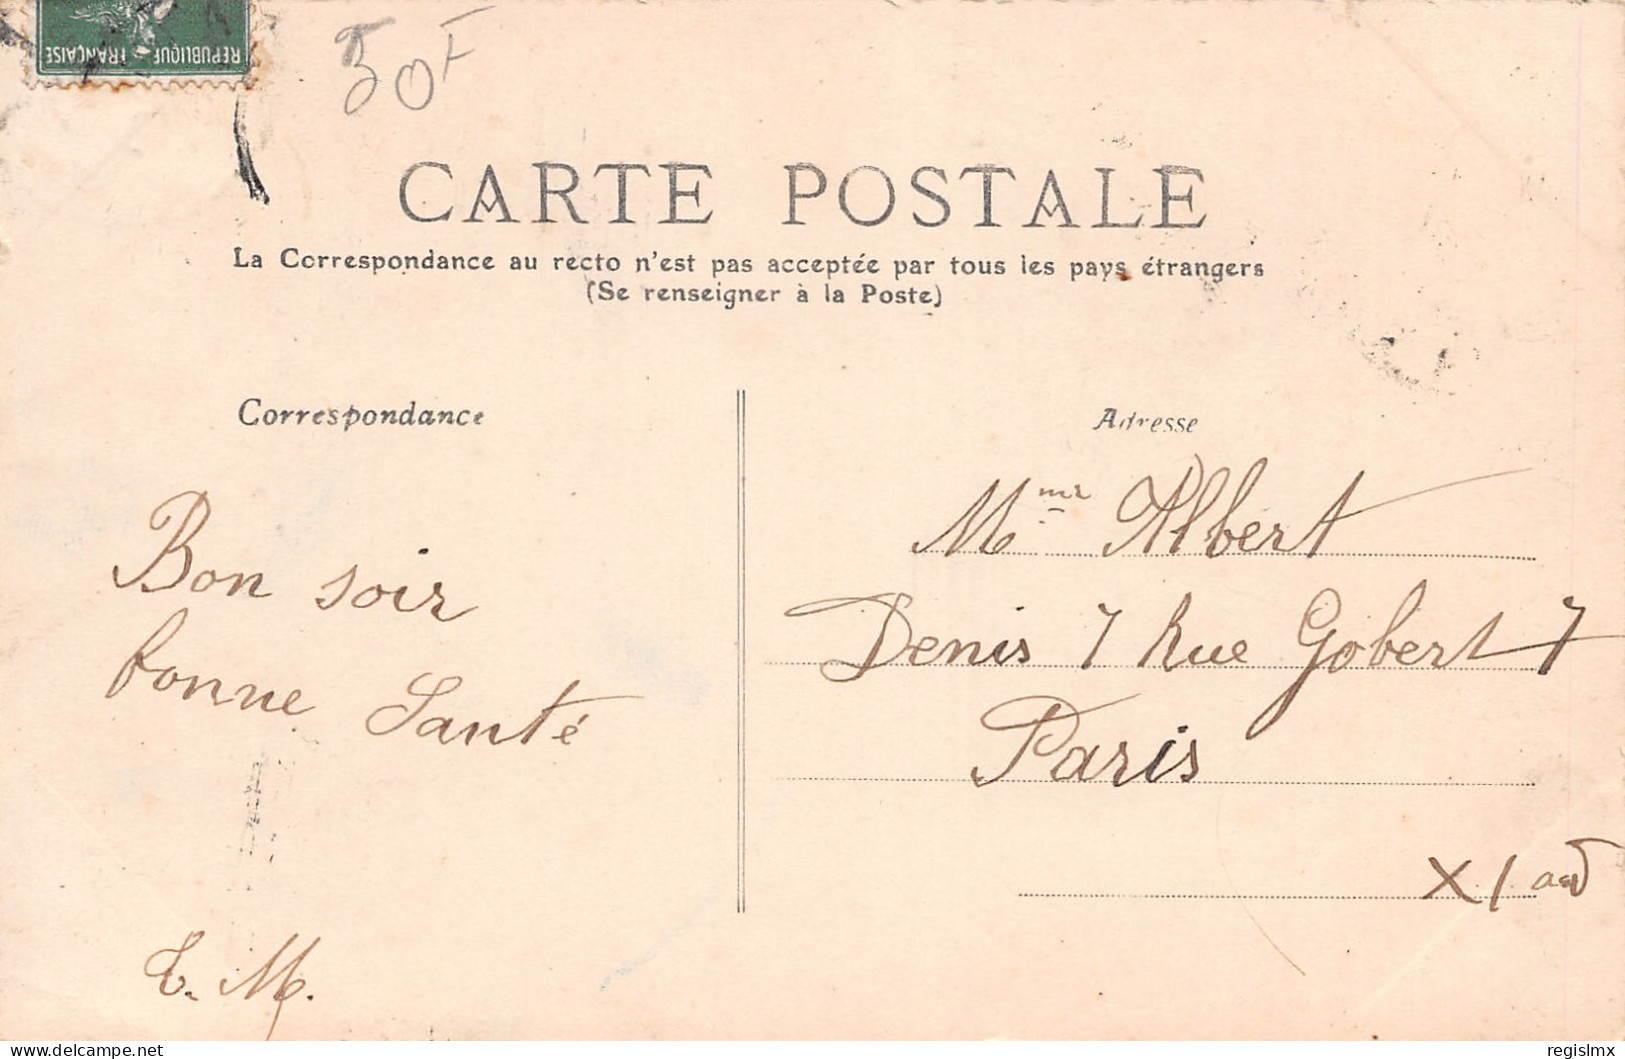 REPUBLIQUE FRANÇAISE
50F
CARTE POSTALE
La Correspondance au recto n'est pas acceptée par tous les pays étrangers
(Se renseigner à la Poste)
Correspondance
Bon soir
bonne Santé
E. M.
Adresse
Mme Albert
Denis 7 Rue Gobert 7
Paris
XI
www.delcampe.net
regislmx